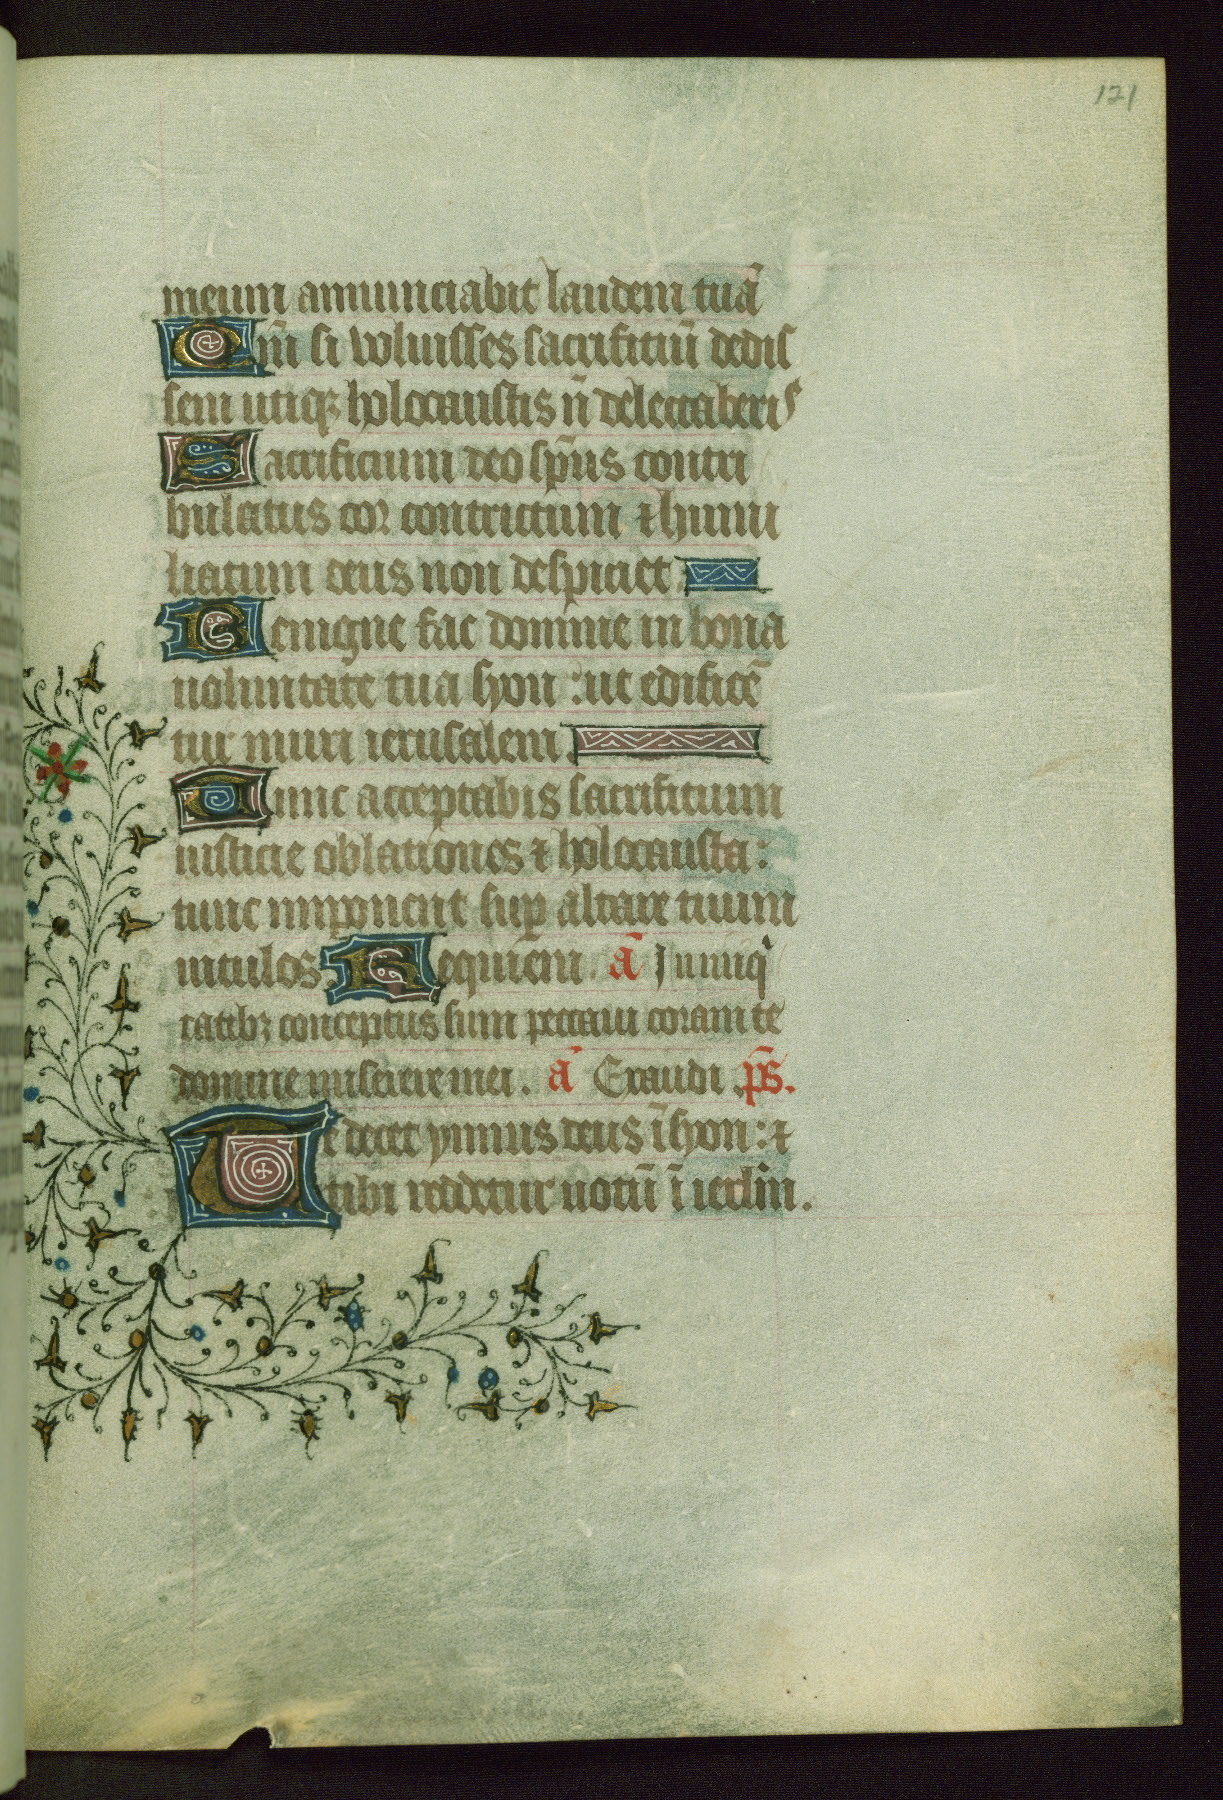 121
meum annunciabit laudem tuā
Qm̄ si voluisses sacrificiū dedis
sem utiqꝫ holocaustis n̄ delectaberis
Sacrificium deo sp̄us contri
bulatus cor contrictum ⁊ humi
liatum deus non despiciet.
Benigne fac domine in bona
uoluntate tua syon : ut edificē
tur muri ierusalem.
Tunc acceptabis sacrificium
iusticie oblationes ⁊ holocausta :
tunc imponent suꝑ altare tuum
uitulos. Requiem. ā Iniuiqͥ
tatibꝫ conceptus sum peccaui coram te
domine miserere mei. ā Exaudi. p̄s.
Te decet ymnus deus ī syon : ⁊
tibi reddetur uotū ī ierlm̄.